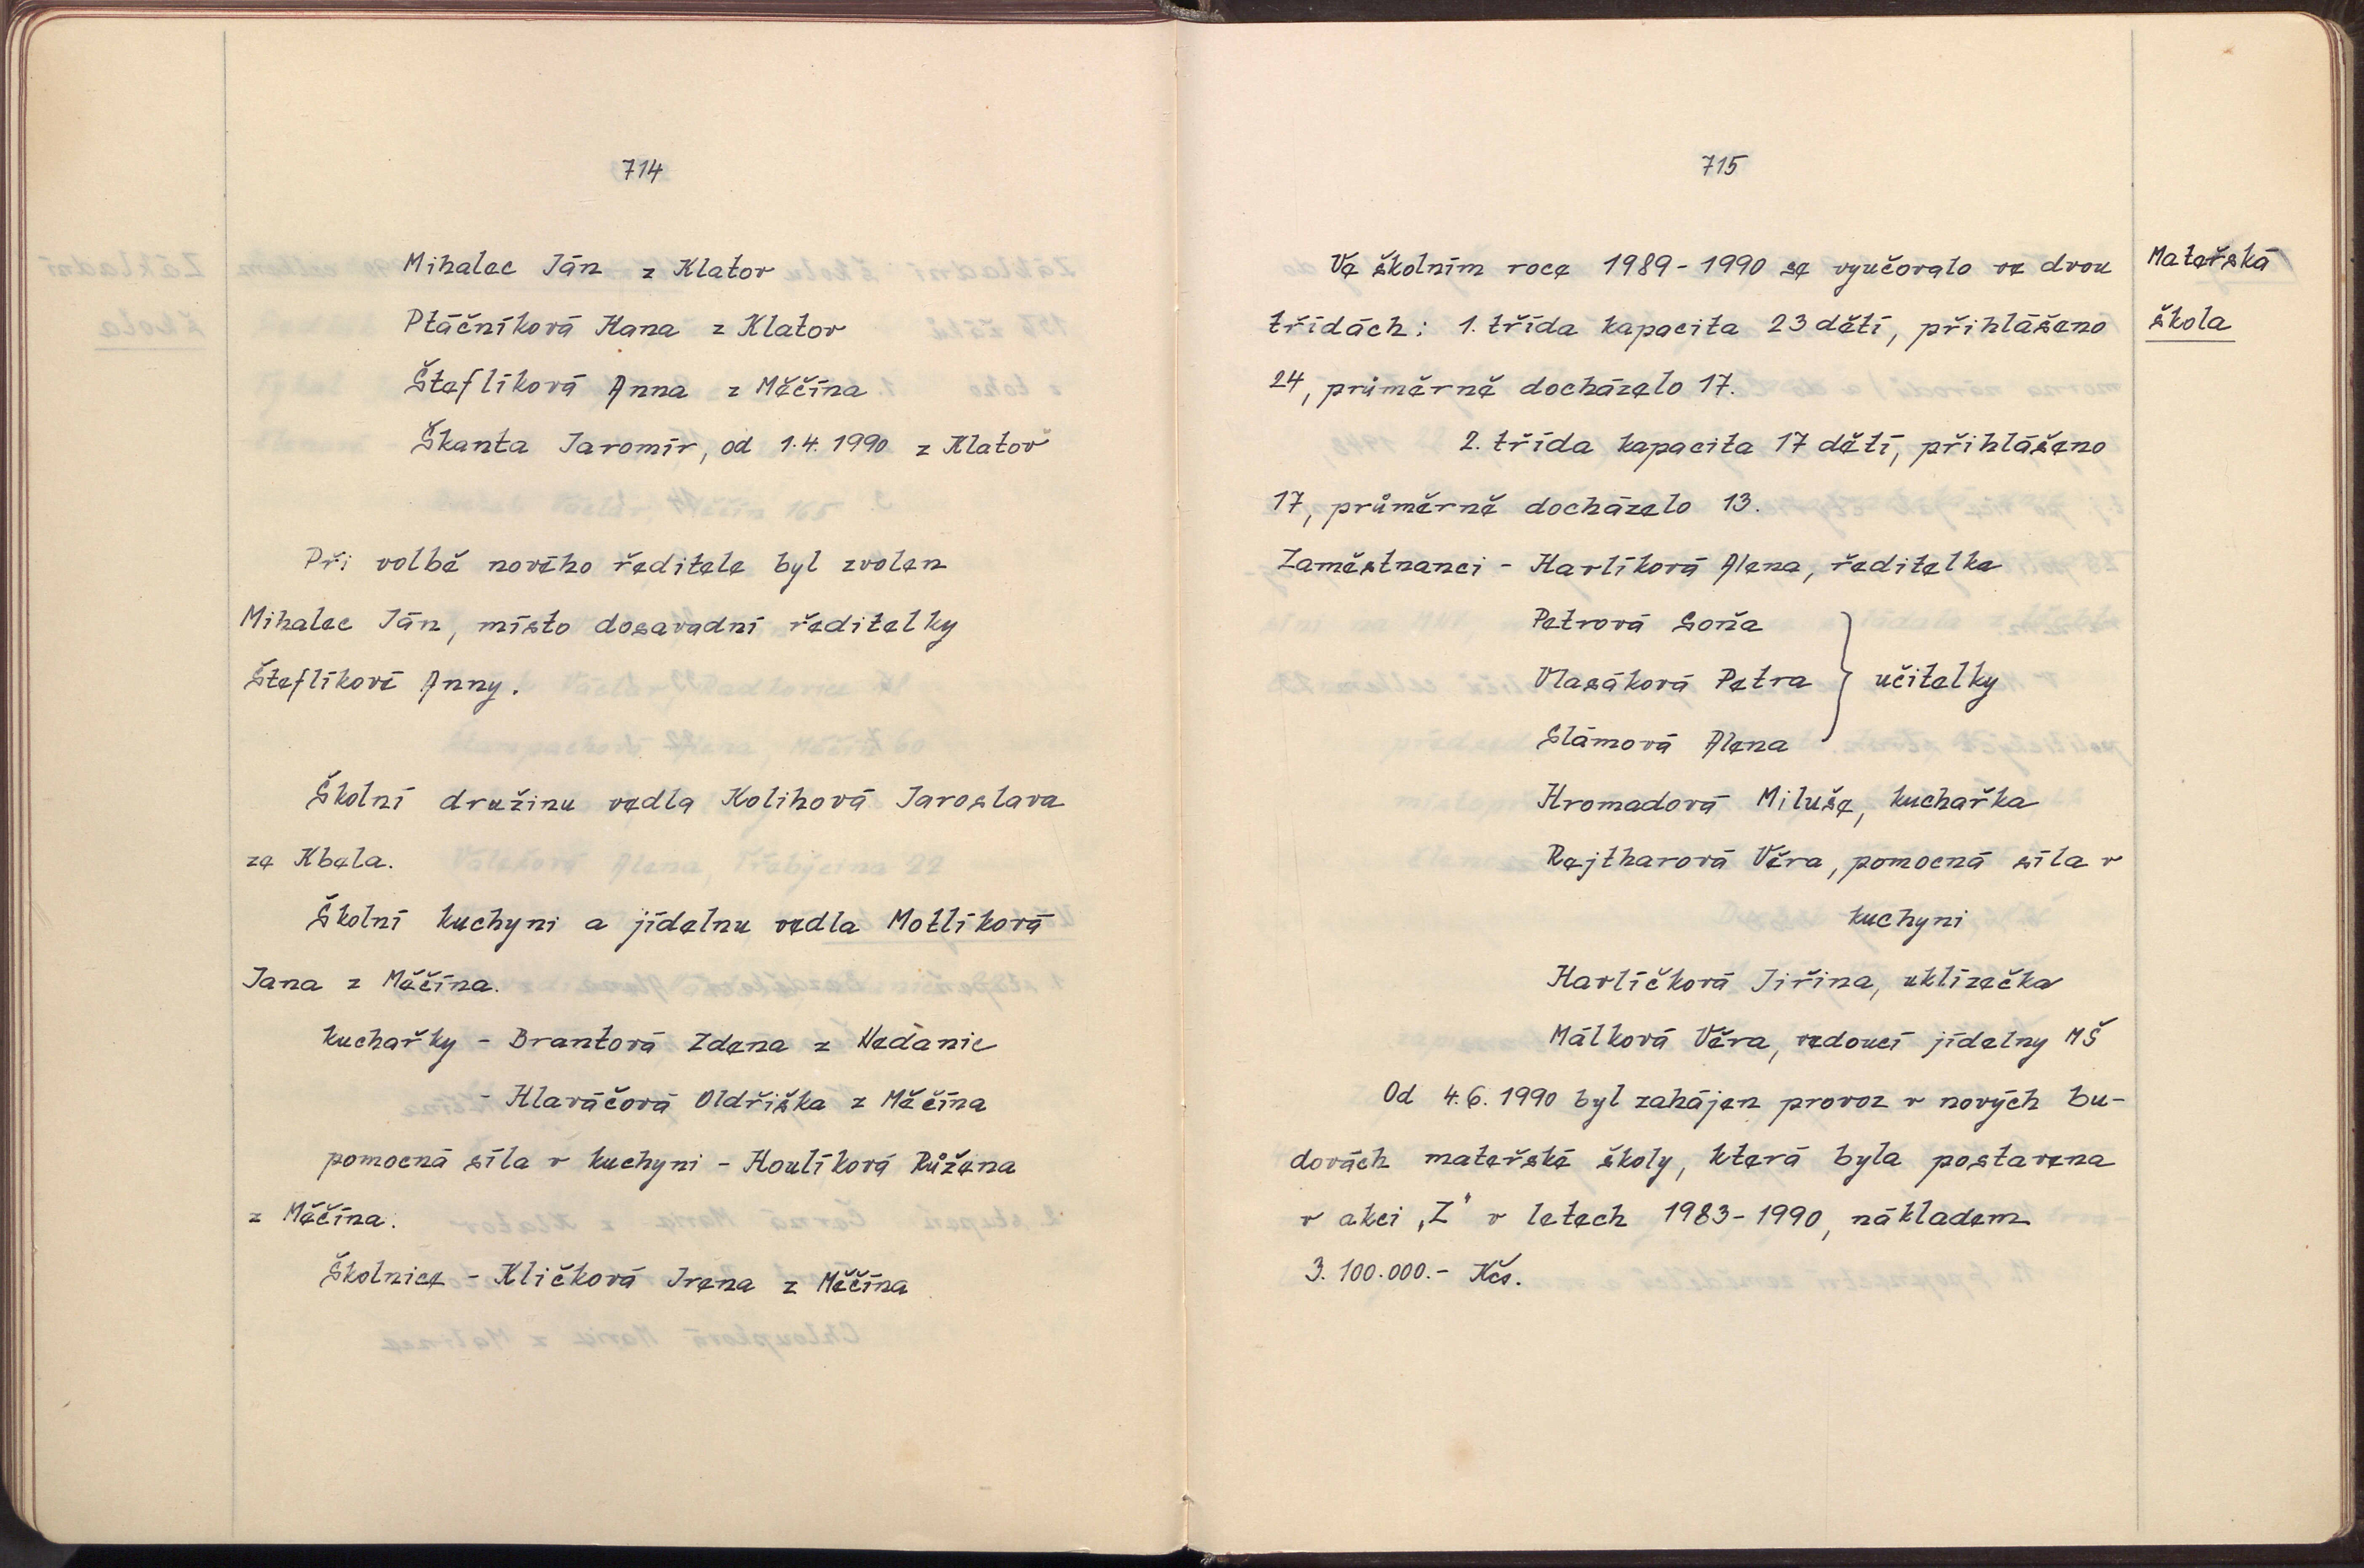 714
Mihalec Ján z Klatov
Ptáčníková Hana z Klatov
Šteflíková Anna z Měčína
Škanta Jaromír, od 1.4.1990 z Klatov
Při volbě nového ředitele byl zvolen
Mihalec Ján, místo dosavadní ředitelky
Šteflíkové Anny.
Školní družinu vedla Kolihová Jaroslava
ze Kbela.
Školní kuchyni a jídelnu vedla Motlíková
Jana z Měčína.
kuchařky - Brantová Zdena z Nedanic
- Hlaváčová Oldřiška z Měčína
pomocná síla v kuchyni - Houlíková Růžena
z Měčína.
Školnice - Kličková Irena z Měčína
715
Ve školním roce 1989-1990 se vyučovalo ve dvou
třídách: 1. třída kapacita 23 dětí, přihlášeno
24, průměrně docházelo 17.
2. třída kapacita 17 dětí, přihlášeno
17, průměrně docházelo 13.
Zaměstnanci - Harlíková Alena, ředitelka
Petrová Soňa
Vlasáková Petra } učitelky
Slámová Alena
Hromadová Miluše, kuchařka
Rejtharová Věra, pomocná síla v
kuchyni
Harlíčková Jiřina, uklízečka
Málková Věra, vedoucí jídelny MŠ
Od 4.6.1990 byl zahájen provoz v nových bu-
dovách mateřské školy, která byla postavena
v akci „Z" v letech 1983-1990, nákladem
3.100.000.- Kčs.
Mateřská
škola